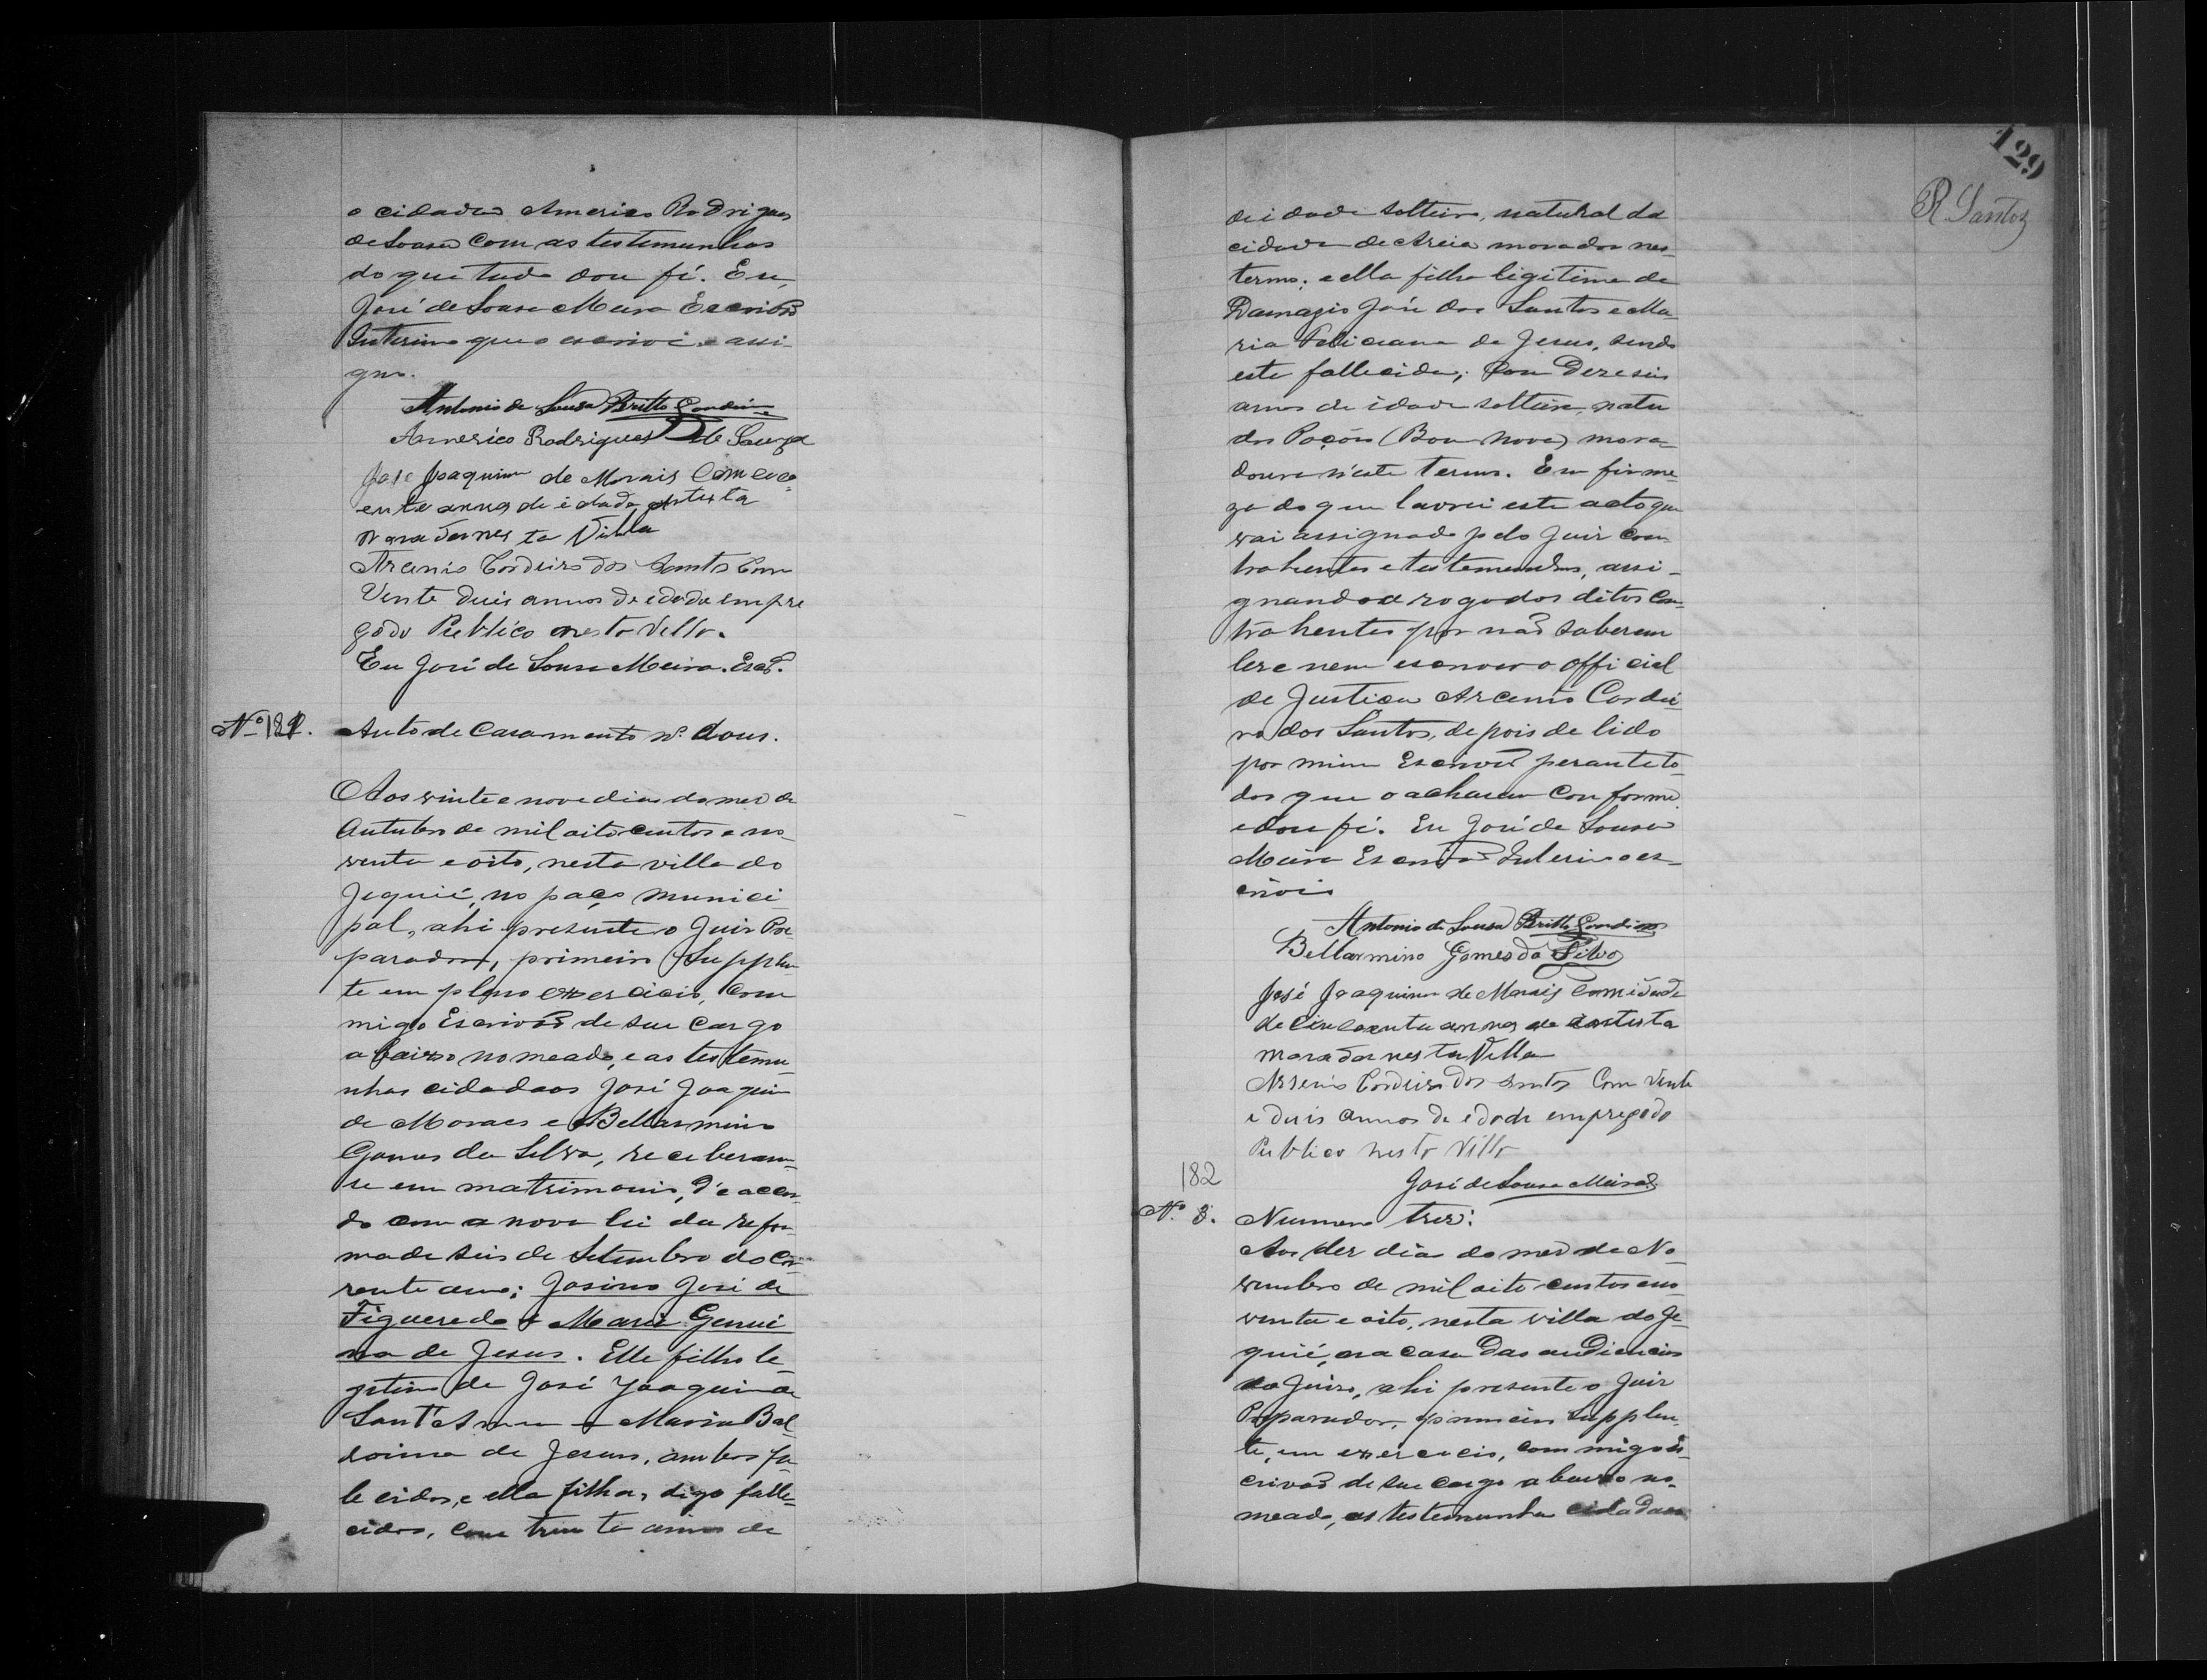 o cidadão Americo Rodrigues
de Sousa com as testemunhas
do que tudo dou fé. Eu,
José de Sousa Meira Escrivão
Interino que o escrivi e assi-
gno.
Antonio de Sousa Britto Gondim
Americo Rodrigues de Souza
José Joaquim de Morais Com coco
enta annos de idade
moradornesta Villa
Arcenio Cordeiro dos Santos Com
Vente duis annos de edade empre
gado Publico nesta Villa.
Eu José de Sousa Meira. Escº.
Nº 181. Auto de Casamento nº dous.
Aos vinte e nove dias do mes de
Outubro de mil oito centos e no-
venta e oito, nesta villa do
Jequié, no paço munici-
pal, ahi presente o Juiz Pre-
parador, primeiro Supplen-
te em pleno exercicio, com-
migo Escrivão de seu Cargo
abaixo nomeado, e as testemu-
nhas cidadaos José Joaquim
de Moraes e Bellarmino
Gomes da Silva, receberam-
se em matrimonio, d'e accor-
do com a nova lei da refor-
ma de seis de Setembro do Cor-
rente anno; Josino José de
Figueredo e Maria Genui
na de Jesus. Elle filho le-
gitimo de José Joaquim de
Sant'Anna e Maria Bal-
doina de Jesus, ambos fa-
lecidos, e ella filha, digo falle-
cidos, com trinta annos de
129
R. Santos
de idade solteiro, natural da
cidade de Areia morador nes-
termo; e ella filha ligitima de
Damazio José dos Santos e Ma-
ria Feliciana de Jesus, sendo
este fallecido; com dezeseis
annos de idade solteira, natu
dos Poções (Boa Nova) mora-
doura n'este termo. Em firme-
za do que lavrei este acto que
vai assignado pelo Juiz con-
trahentes e testemunhas, assi-
gnando a rogo dos ditos con-
trahentes por não saberem
lere nem escrever o official
de Justiça Arcenio Cordei-
ro dos Santos, depois de lido
por mim Escrivão perante to-
dos que o acharam conforme
e dou fé. Eu José de Sousa
Meira Escrivão Interino o es-
crivi
Antonio de Sousa Britto Gondim
Bellarmino Gomes da Silva
José Joaquim de Morais Com idade
de Cincoenta annos
morador nesta Villa
Arsenio Cordeiro dos Santos Com Vente
e duis annos de edade empregado
Publico nesta Villa
José de Sousa Meira
182
Nº 3. Numero tres:
Aos dez dias do mes de No-
vembro de mil oito centos e no-
venta e oito, nesta villa do Je-
quié, na casa das audiencias
do Juizo, ahi presente o Juiz
Preparador, primeiro Supplen-
te, em exercicio, commigo Es-
crivão de seu cargo abaixo no-
meado, as testemunhas cidadaos